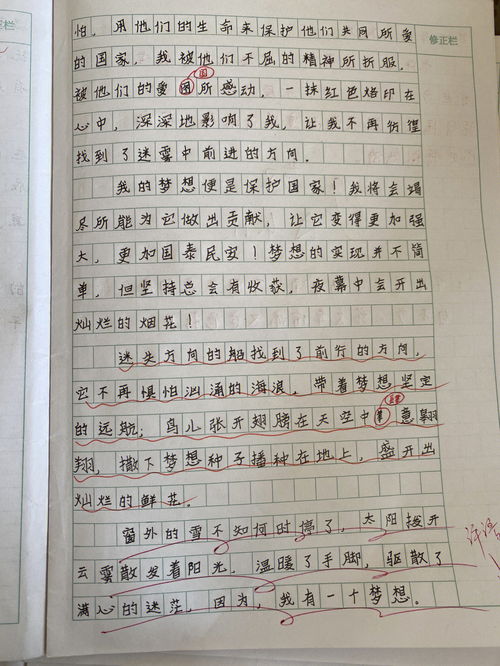 怕，用他们的生命来保护他们共同所爱
修正栏
的国家，我被他们不屈的精神所折服。
国
被他们的爱国所感动，一抹红色烙印在
心中，深深地影响了我，让我不再彷徨
找到了迷雾中前进的方向。
我的梦想便是保护国家！我将会竭
尽所能为它做出贡献，让它变得更加强
大，更加国泰民安！梦想的实现并不简
单，但坚持总会有收获，夜幕中会开出
灿烂的烟花！
迷失方向的船找到了前行的方向，
它不再惧怕汹涌的海浪，带着梦想坚定
的远航；鸟儿张开翅膀在天空中意翱
翔，撒下梦想种子播种在地上，盛开出
灿烂的鲜花。
窗外的雪不如何时停了，太阳拨开
云雾散发着阳光，温暖了手脚，驱散了
满心的迷茫，因为，我有一个梦想。